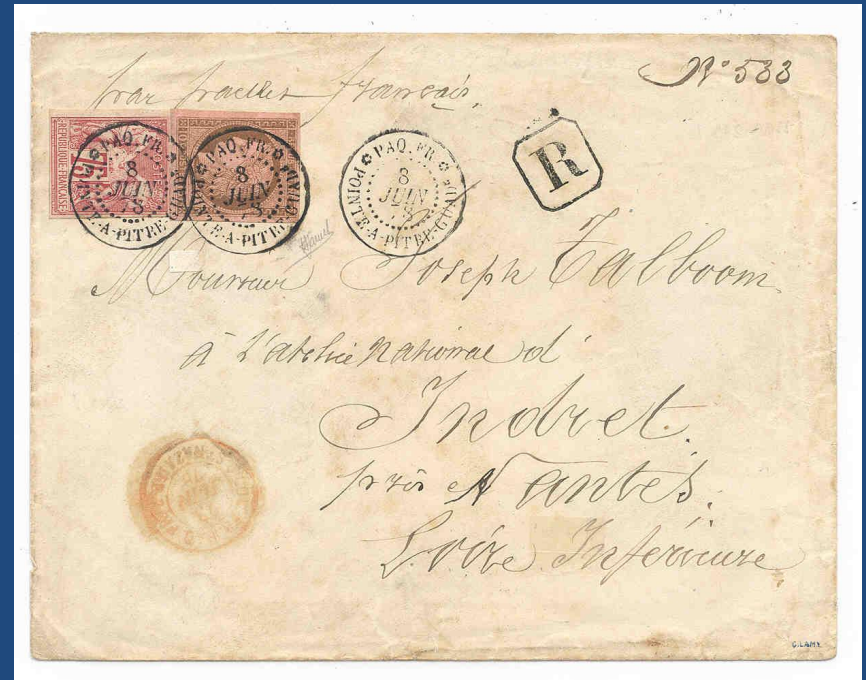 par paquebot français.
N° 533
R
75
REPUBLIQUE FRANÇAISE
PAQ. FR.
8
JUIN
78
POINTE-A-PITRE-GUAD
PAQ. FR.
8
JUIN
78
POINTE-A-PITRE-GUAD
PAQ. FR.
8
JUIN
78
POINTE-A-PITRE-GUAD
Monsieur Joseph Talboom
à L'atelie Nationnal d'
Indret.
près Nantes.
Loire Inférieure
C.LAMY.